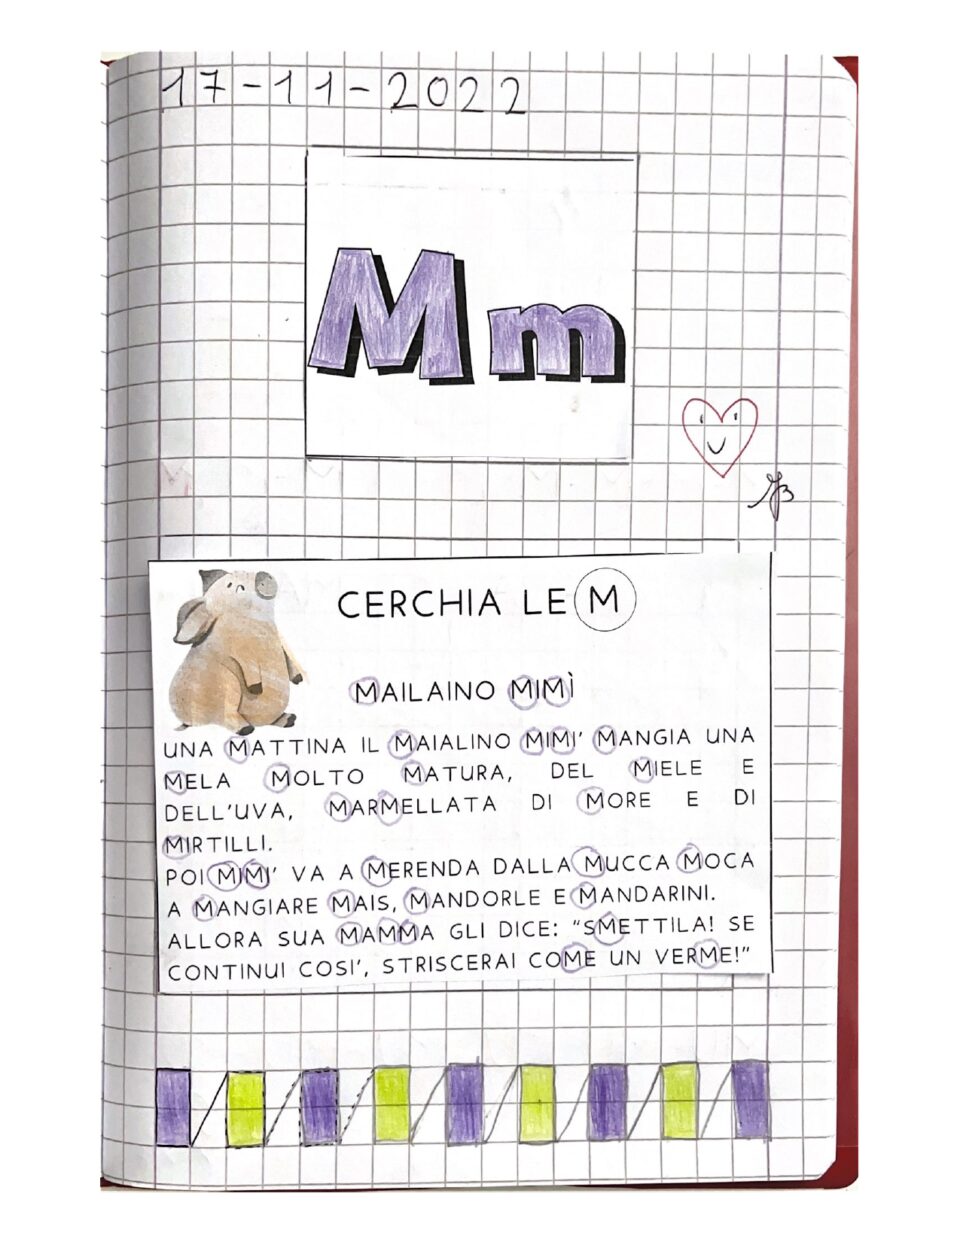 17-11-2022
M m
CERCHIA LE M
MAILAINO MIMÌ
UNA MATTINA IL MAIALINO MIMI' MANGIA UNA
MELA MOLTO MATURA, DEL MIELE E
DELL'UVA, MARMELLATA DI MORE E DI
MIRTILLI.
POI MIMI' VA A MERENDA DALLA MUCCA MOCA
A MANGIARE MAIS, MANDORLE E MANDARINI.
ALLORA SUA MAMMA GLI DICE: "SMETTILA! SE
CONTINUI COSI', STRISCERAI COME UN VERME!"